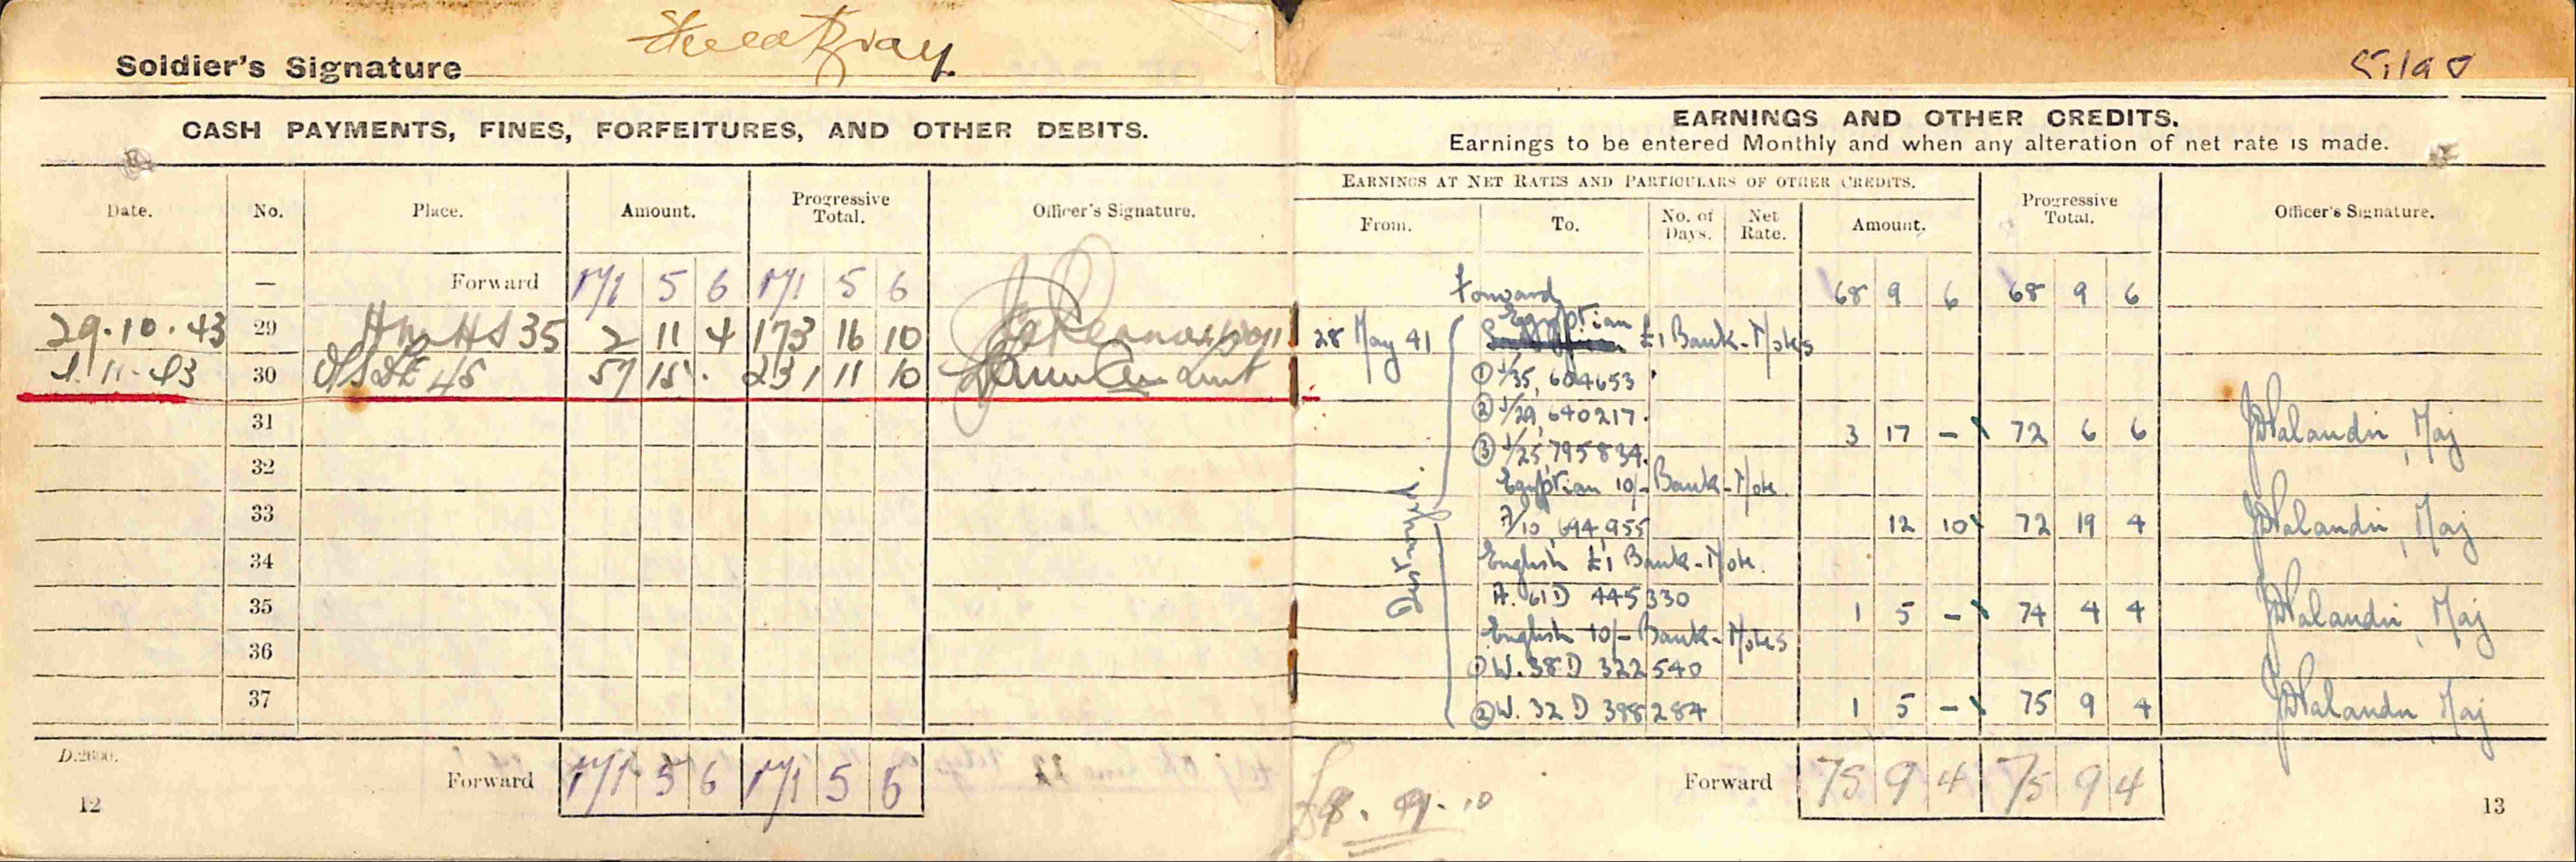 Soldier's Signature
CASH PAYMENTS, FINES, FORFEITURES, AND OTHER DEBITS.
Date. No. Place. Amount. Progressive Total. Officer's Signature.
— Forward 171 5 6 171 5 6
29.10.43 29 35 2 11 4 173 16 10
1.11.43 30 45 57 15 . 231 11 10
31
32
33
34
35
36
37
D.2600.
Forward 171 5 6 171 5 6
12
EARNINGS AND OTHER CREDITS.
Earnings to be entered Monthly and when any alteration of net rate is made.
EARNINGS AT NET RATES AND PARTICULARS OF OTHER CREDITS.
From. To. No. of Days. Net Rate. Amount. Progressive Total. Officer's Signature.
Forward 68 9 6 68 9 6
28 May 41 Egyptian £1 Bank-Notes
① J/35, 604653
② J/29, 640217.
③ J/25, 795834. 3 17 – 72 6 6 Maj
Egyptian 10/- Bank-Note.
12 10 72 19 4 Maj
/10, 694,955
English £1 Bank-Note.
A. 61D 445330 1 5 – 74 4 4 Maj
English 10/- Bank-Notes
① W. 38D 322540
② W. 32 D 398284 1 5 – 75 9 4 Maj
Destroyed.
Forward 75 9 4 75 9 4
13